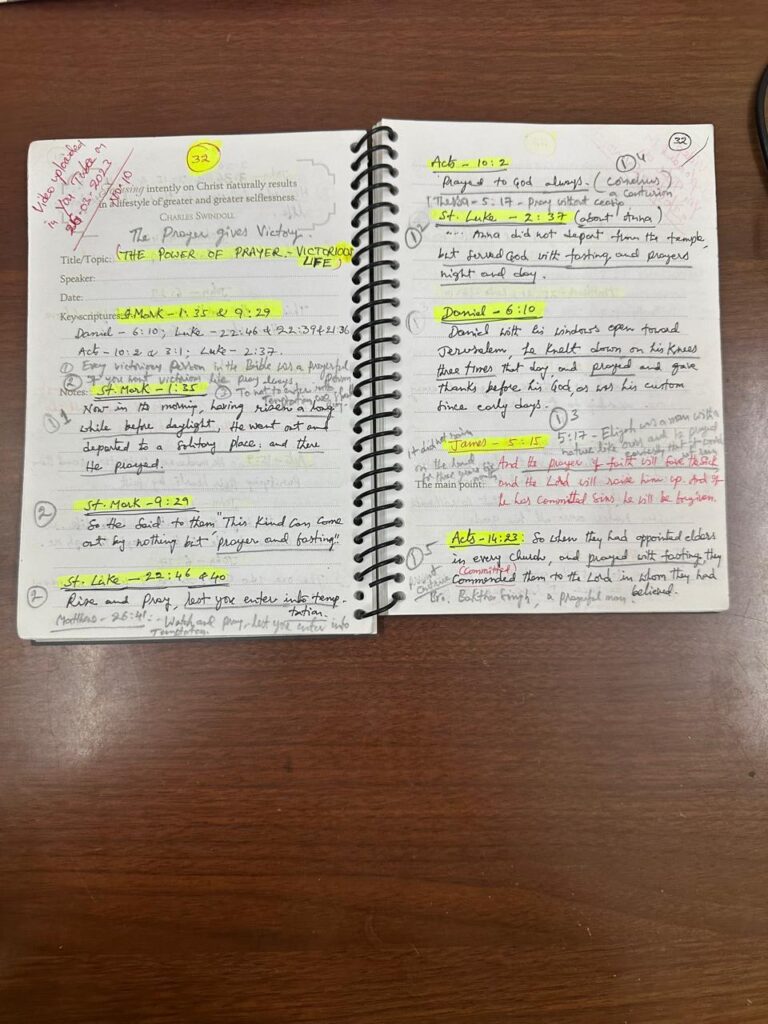 Video uploaded
in You Tube on
26-03-2023
32
intently on Christ naturally results
in a lifestyle of greater and greater selflessness.
CHARLES SWINDOLL
The Prayer gives Victory.
Title/Topic: (THE POWER OF PRAYER - VICTORIOUS
LIFE)
Speaker:
Date:
Key scriptures: St. Mark - 1:35 & 9:29
Daniel - 6:10; Luke - 22:46 & 22:39 & 21:36
Acts - 10:2 & 3:1; Luke - 2:37.
① Every victorious Person in the Bible was a prayerful
Person
② If you want victorious life pray always.
③ To not to enter into
Temptation
Notes: St. Mark - 1:35
① 1 Now in the morning, having risen a long
while before daylight, He went out and
departed to a Solitary place: and there
He prayed.
② St. Mark - 9:29
So He Said to them "This Kind Can Come
out by nothing but "prayer and fasting"
② St. Luke - 22:46 & 40
Rise and Pray, lest you enter into temp-
tation.
Matthew - 26:41 - Watch and pray, lest you enter into
Temptation.
32
Acts - 10:2 ① 4
Prayed to God always. (Cornelius)
a Centurion
5:17 - Pray without
St. Luke - 2:37 (about Anna)
① 2 Anna did not depart from the temple,
but served God with fasting and prayers
night and day.
① Daniel - 6:10
Daniel with his windows open toward
Jerusalem, he knelt down on his knees
three times that day, and prayed and gave
thanks before his God, as was his custom
since early days.
① 3
5:17 - Elijah was a man with a
nature like ours and he prayed
earnestly that it would
not rain
it did not rain
on the land
for three years
James - 5:15
And the prayer of faith will save the Sick
The main point: and the Lord will raise him up. And if
he has committed Sins, he will be forgiven.
① 5 Acts - 14:23: So when they had appointed elders
in every Church, and prayed with fasting, they
(Committed)
Commended them to the Lord in whom they had
believed.
Bro. Bakther Singh, a prayerful man.